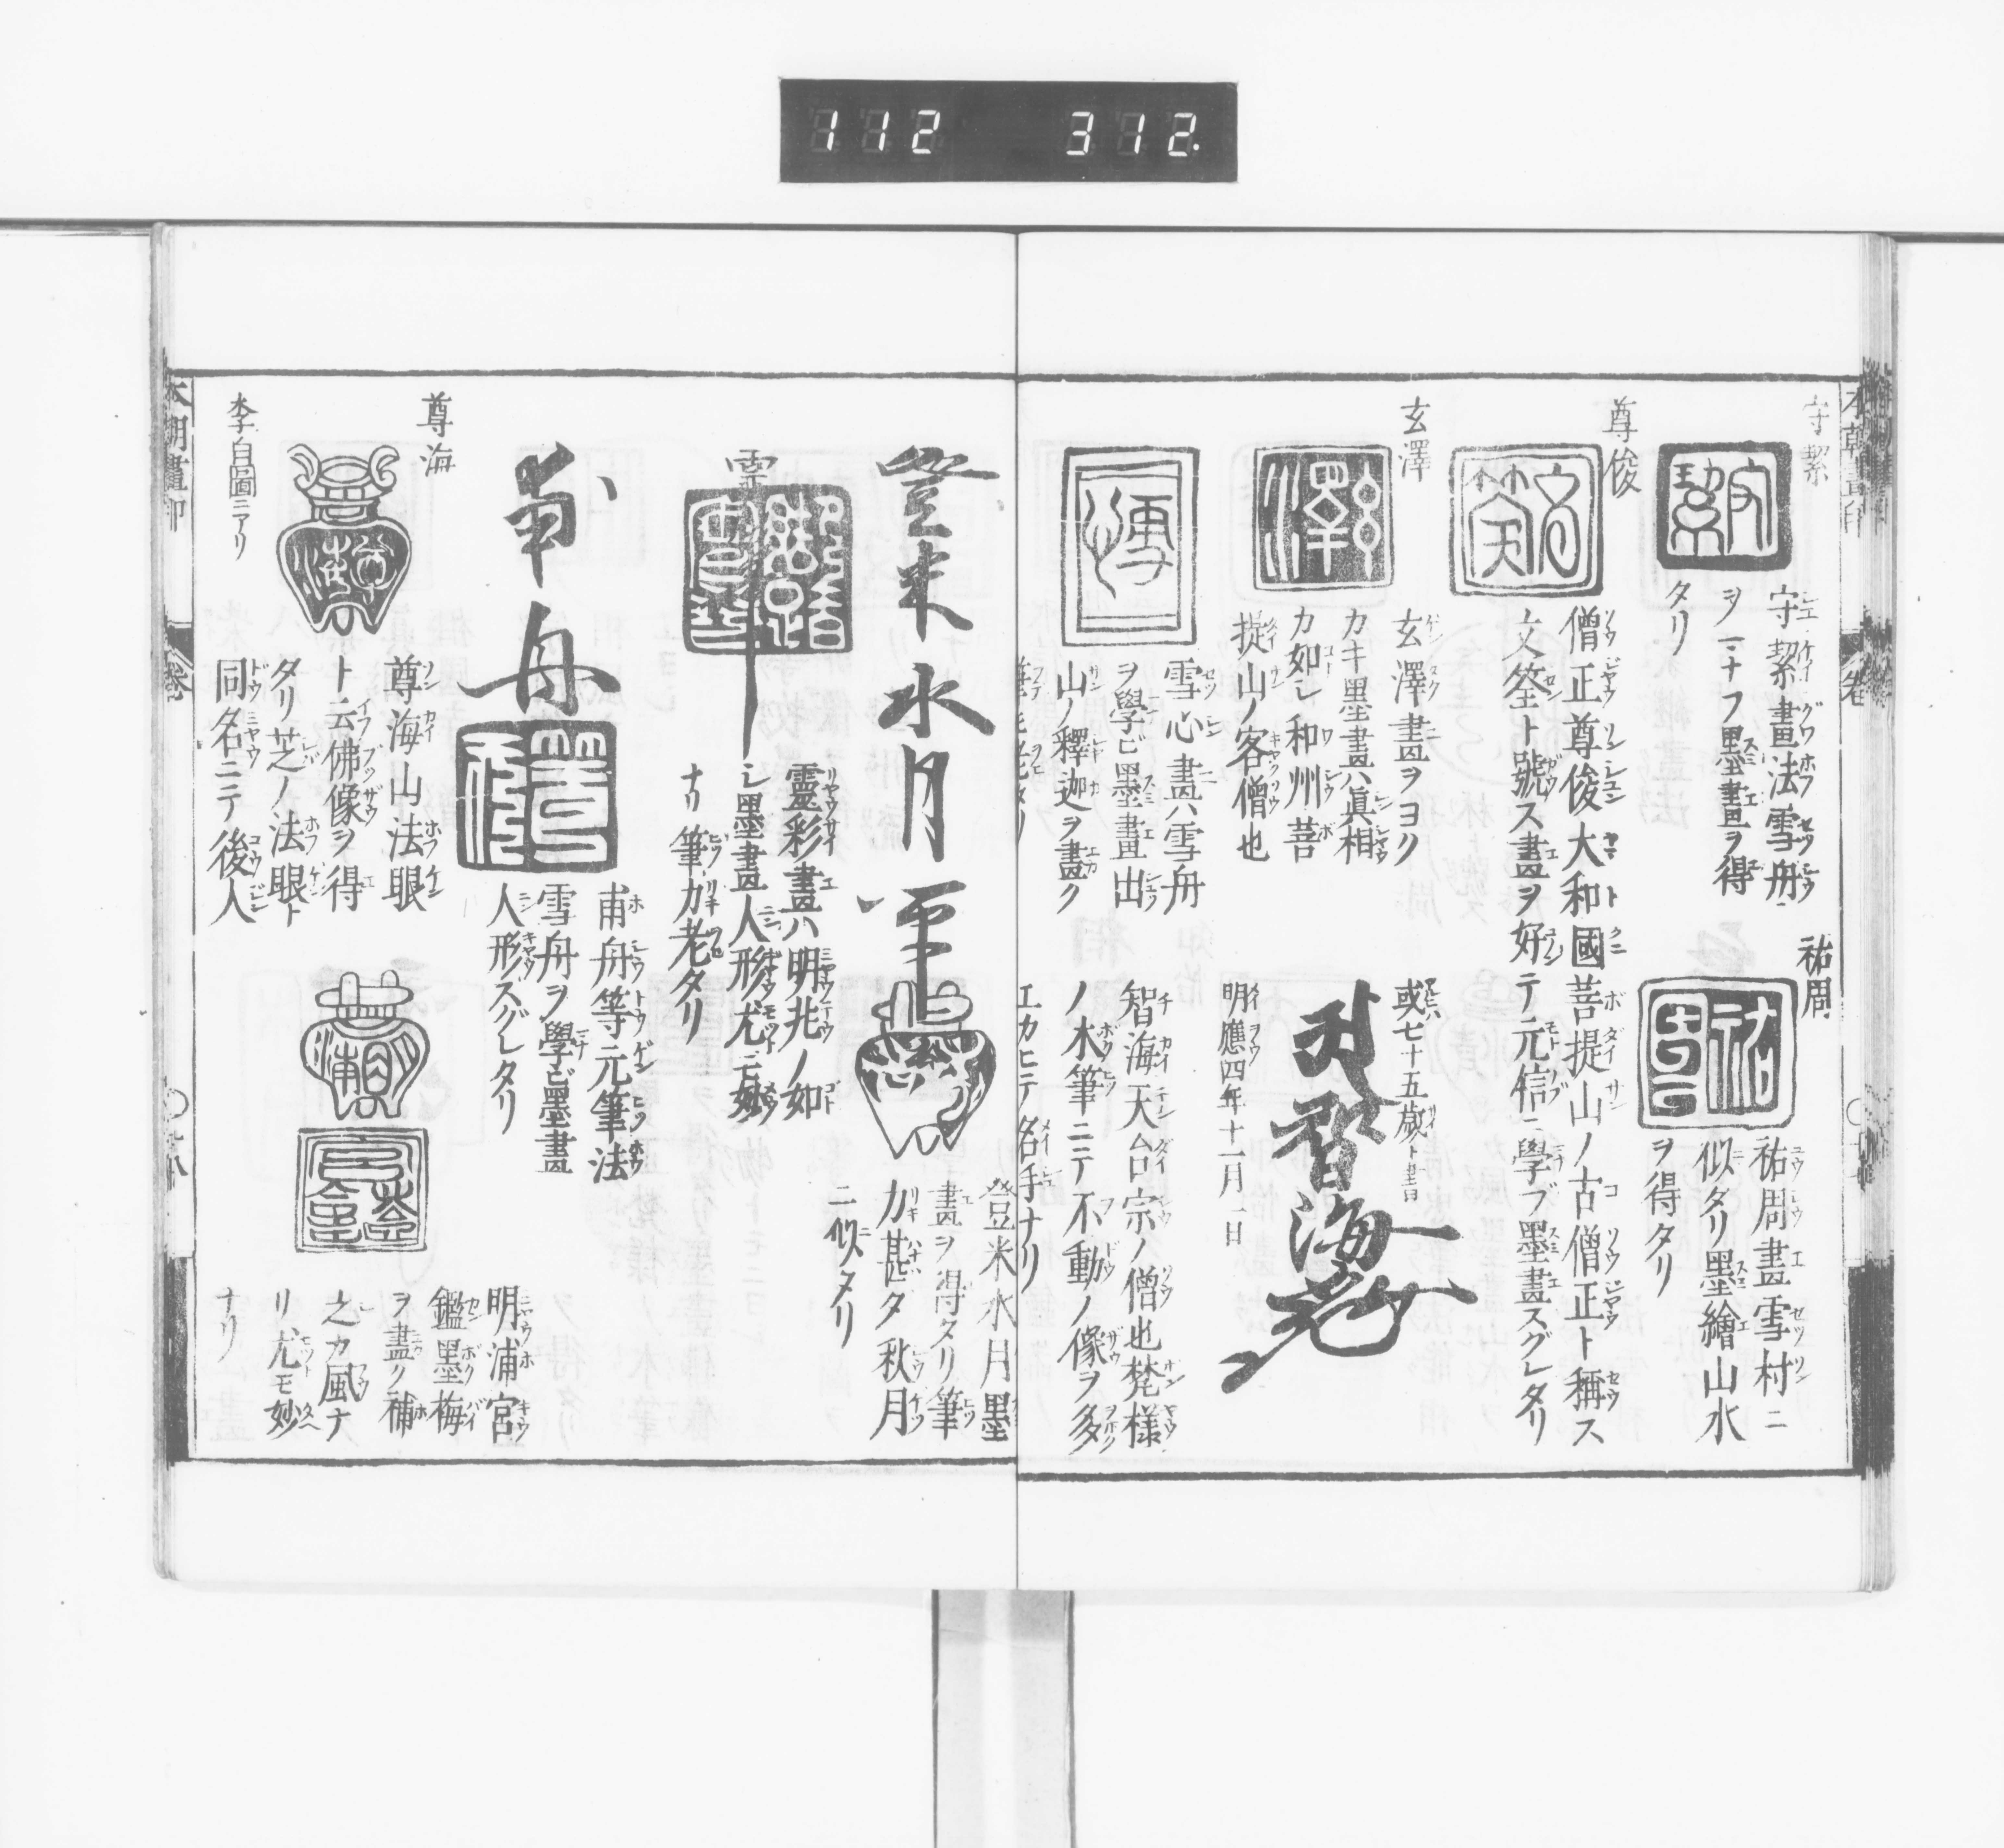 112 312.
守絜
守絜畫法雪舟
ヲマナフ墨畫ヲ得
タリ
祐周
祐周畫雪村ニ
似タリ墨繪山水
ヲ得タリ
尊俊
僧正尊俊大和國菩提山ノ古僧正ト稱ス
文筌ト號ス畫ヲ好テ元信ニ學ブ墨畫スグレタリ
玄澤
玄澤畫ヲヨク
カキ墨畫ハ眞相
カ如シ和州菩
提山ノ客僧也
或七十五歳ト書
智海
明應四年十二月一日
雪心畫ハ雪舟
ヲ學ビ墨畫出
山ノ釋迦ヲ畫ク
筆モ老タリ
智海天台宗ノ僧也梵様
ノ木筆ニテ不動ノ像ヲ多
エカヒテ名手ナリ
登米水月筆
登米水月墨
畫ヲ得タリ筆
力甚タ秋月
ニ似タリ
霊
靈彩畫ハ明兆ノ如
シ墨畫人形尤モ妙
ナリ筆力老タリ
甫舟
甫舟等元筆法
雪舟ヲ學ビ墨畫
人形スグレタリ
尊海
李白圖ニアリ
尊海山法眼
ト云佛像ヲ得
タリ芝ノ法眼ト
同名ニテ後人
明浦宮
鑑墨梅
ヲ畫ク補
之カ風ナ
リ尤モ妙
ナリ
本朝畫印
卷